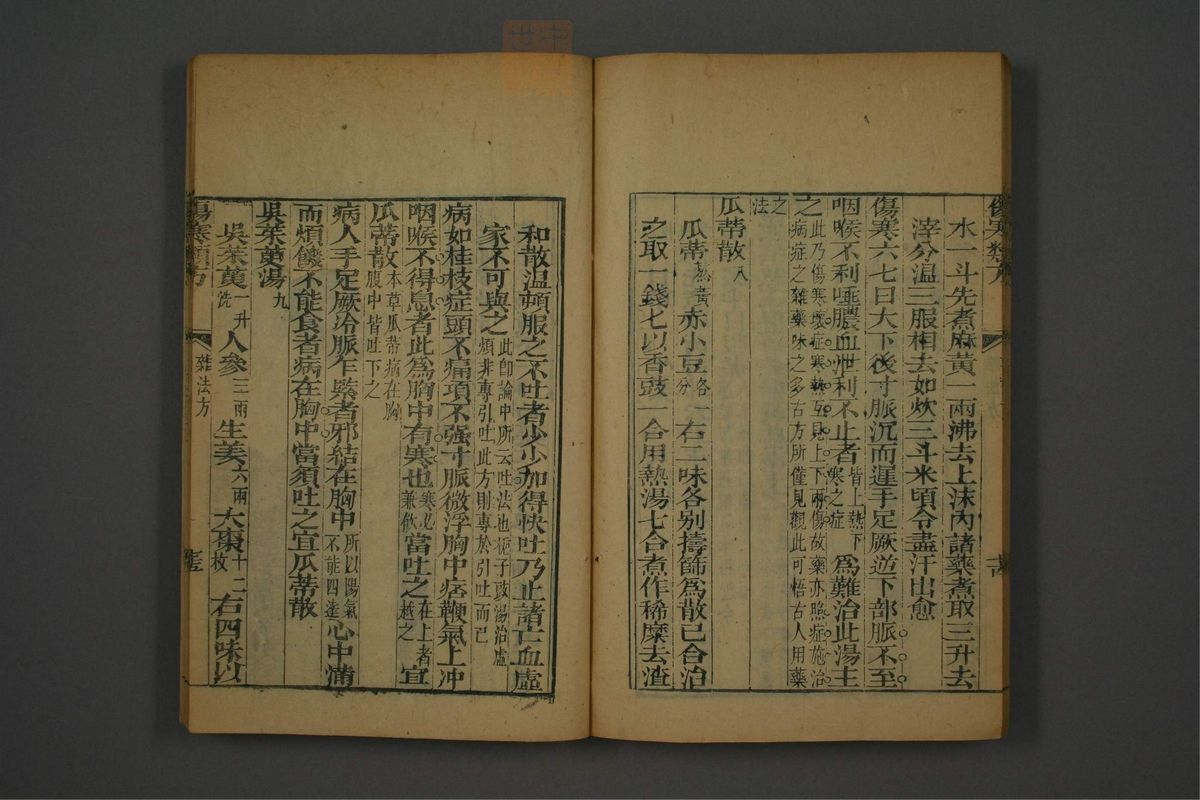 傷寒類方
水一斗先煮麻黃一兩沸去上沫內諸藥煮取三升去
滓分溫三服相去如炊三斗米頃令盡汗出愈
傷寒六七日大下後寸脈沉而遲手足厥逆下部脈不至
咽喉不利唾膿血泄利不止者皆上熱下寒之症爲難治此湯主
之此乃傷寒壞症寒熱互見上下兩傷故藥亦照症施治病症之雜藥味之多古方所僅見觀此可悟古人用藥
之法
瓜蒂散八
瓜蒂熬黃赤小豆各一分右二味各別擣篩爲散已合治
之取一錢匕以香豉一合用熱湯七合煮作稀糜去渣
和散溫頓服之不吐者少少加得快吐乃止諸亡血虛
家不可與之此卽論中所云吐法也梔子豉湯治虛煩非專引吐此方則專於引吐而已
病如桂枝症頭不痛項不强寸脈微浮胸中痞鞕氣上冲
咽喉不得息者此爲胸中有寒也寒必兼飲當吐之在上者越之宜
瓜蒂散本草瓜蒂病在胸腹中皆吐下之
病人手足厥冷脈乍緊者邪結在胸中所以陽氣不能四達心中滿
而煩饑不能食者病在胸中當須吐之宜瓜蒂散
吳茱萸湯九
吳茱萸一升洗人參三兩生姜六兩大棗十二枚右四味以
傷寒類方
雜法方